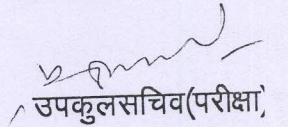 उपकुलसचिव(परीक्षा)